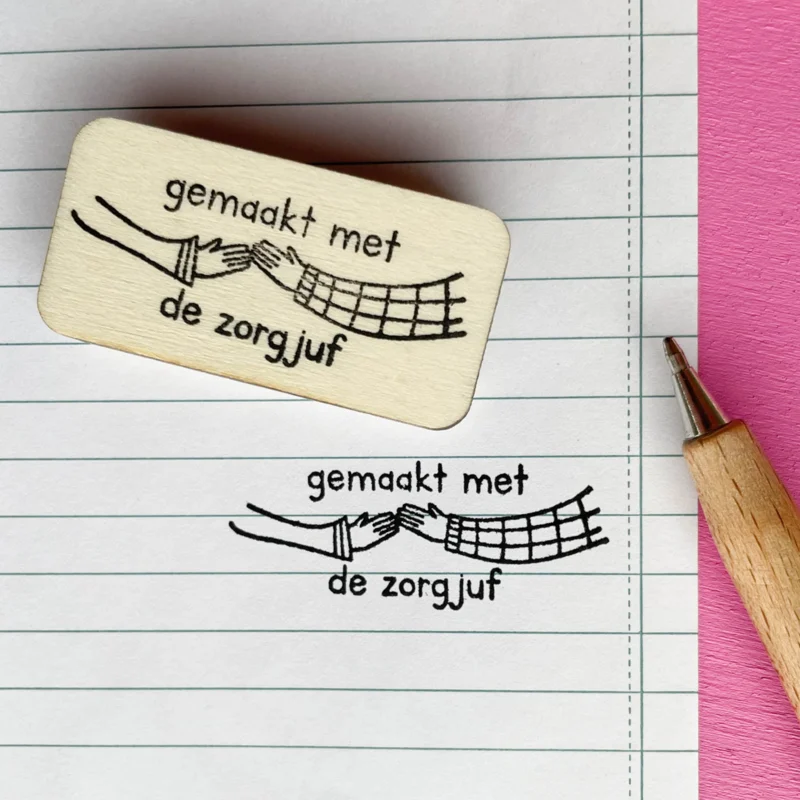 gemaakt met
de zorgjuf
gemaakt met
de zorgjuf